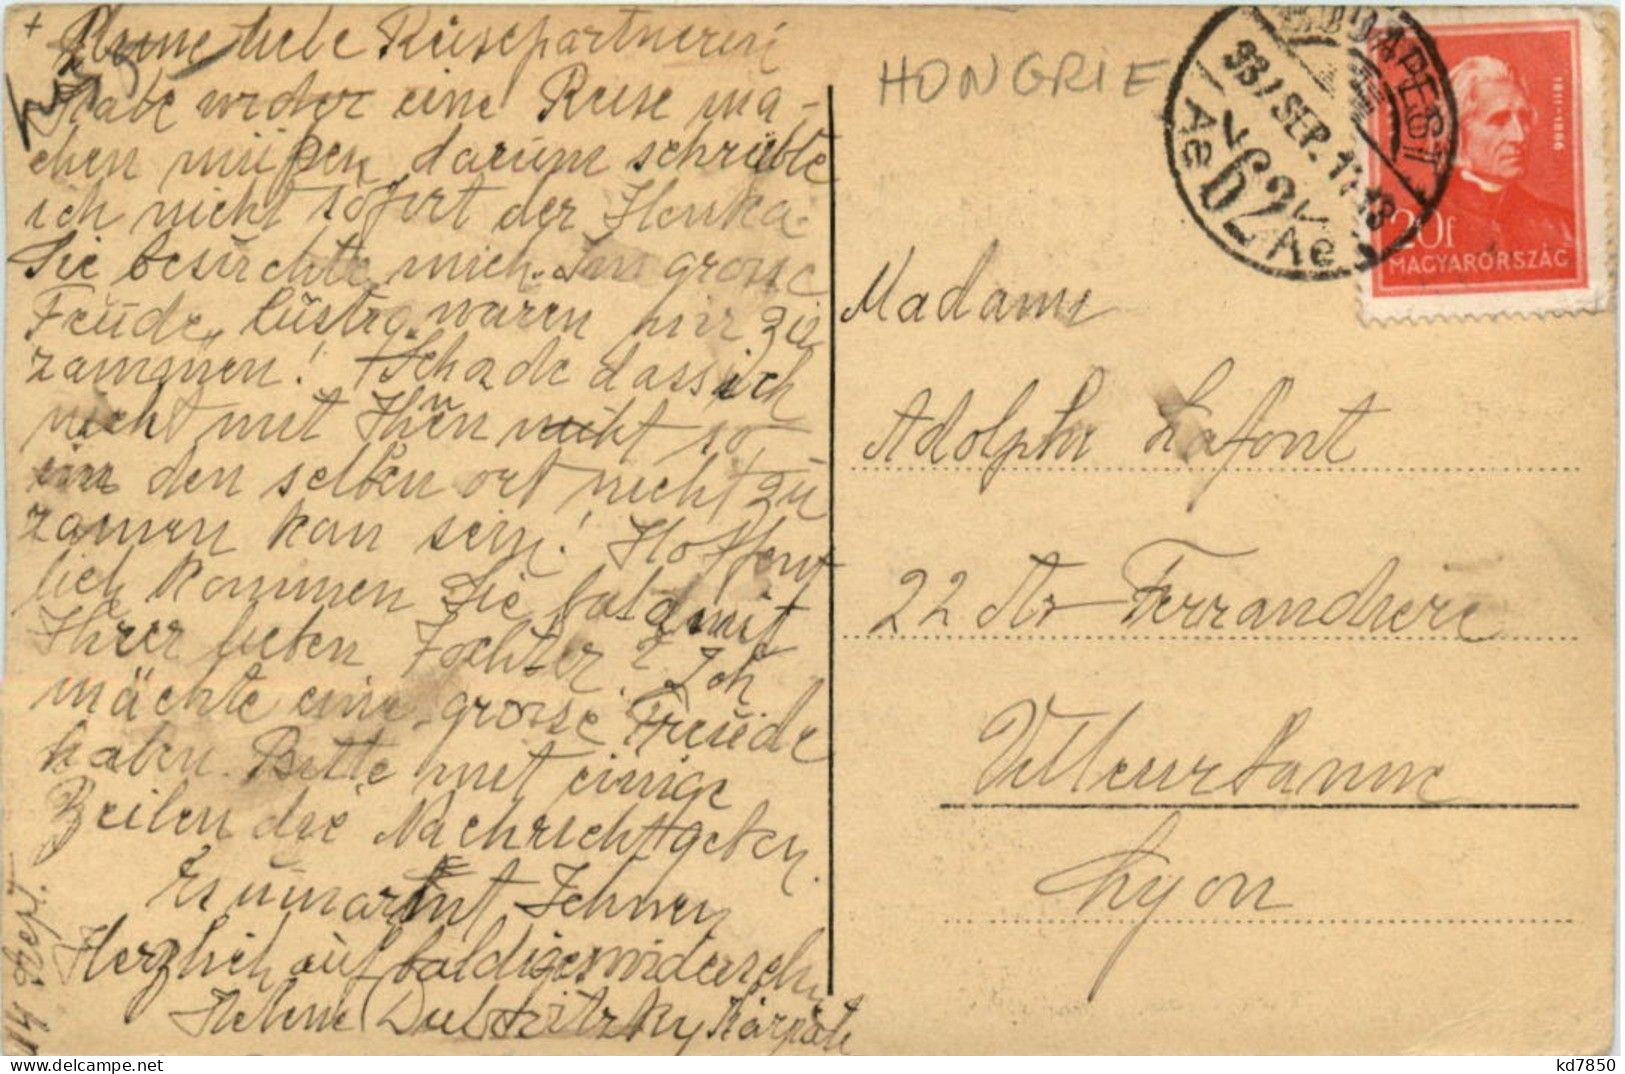 + Meine liebe Reisepartnerin
habe wider eine Reise ma-
chen müßen darum schreibte
ich nicht sofort der Herrka
Sie besuchte mich. Im grosse
Freude, lustig waren wir zu
zammen! Schade dass ich
nicht mit Ihnen nicht so
in den selben ort nicht zu
zamen kan sein! Hoffent
lich kommen Sie bald mit
Ihrer lieben Tochter? Ich
mächte eine grosse Freude
haben. Bitte mit einige
Zeilen die Nachricht geben.
Es umarmt Ihnen
Herzlich auf baldiges widersehn
Helene
14 Sept.
HONGRIE
BUDAPEST
62
Ae
Ae
933 SEP. 1
1811-1886
20f
MAGYARORSZÁG
Madame
Adolphe Lafont
22 Ferrandiere
Villeurbanne
Lyon
kd7850